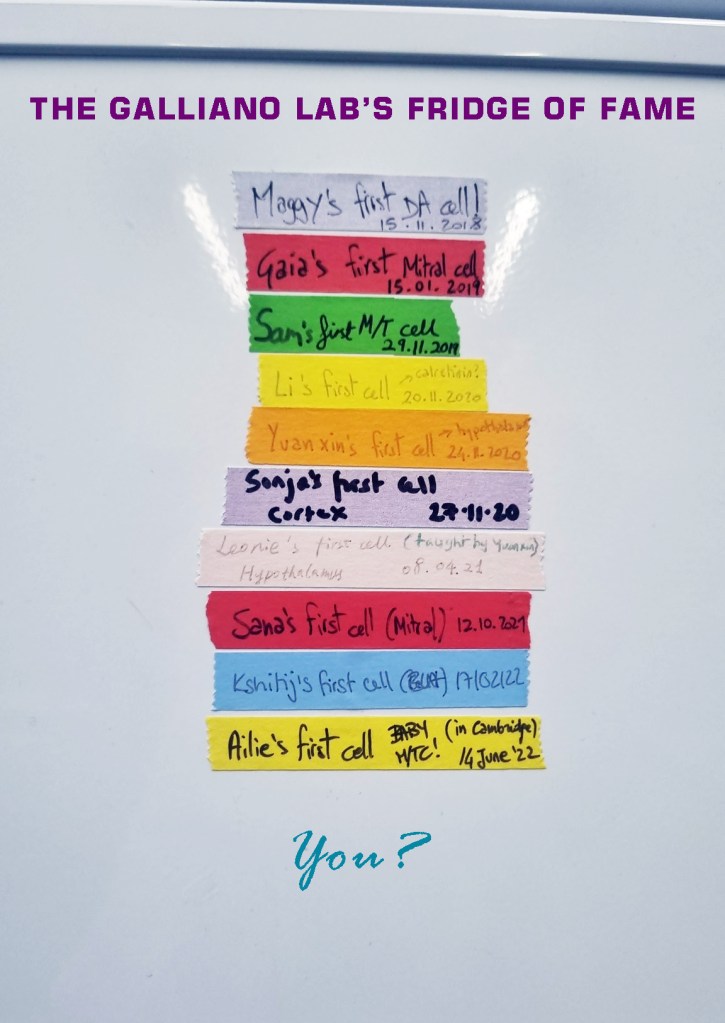 THE GALLIANO LAB'S FRIDGE OF FAME
Maggy's first DA cell!
15.11.2018
Gaia's first Mitral cell
15.01.2019
Sam's first M/T cell
29.11.2019
Li's first cell → calretinin?
20.11.2020
Yuanxin's first cell → hypothalamus
24.11.2020
Sonja's first cell
cortex 27.11.20
Leonie's first cell (taught by Yuanxin)
Hypothalamus 08.04.21
Sana's first cell (Mitral) 12.10.2021
Kshitij's first cell 17/02/22
Ailie's first cell BABY (in Cambridge)
M/TC! 14 June '22
You?